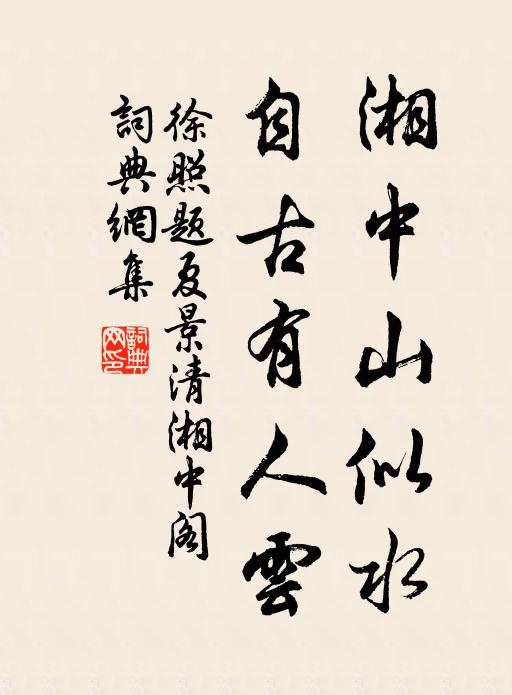 湘中山似水
自古有人雲
徐照题夏景清湘中阁
詞典網集
詞典網印